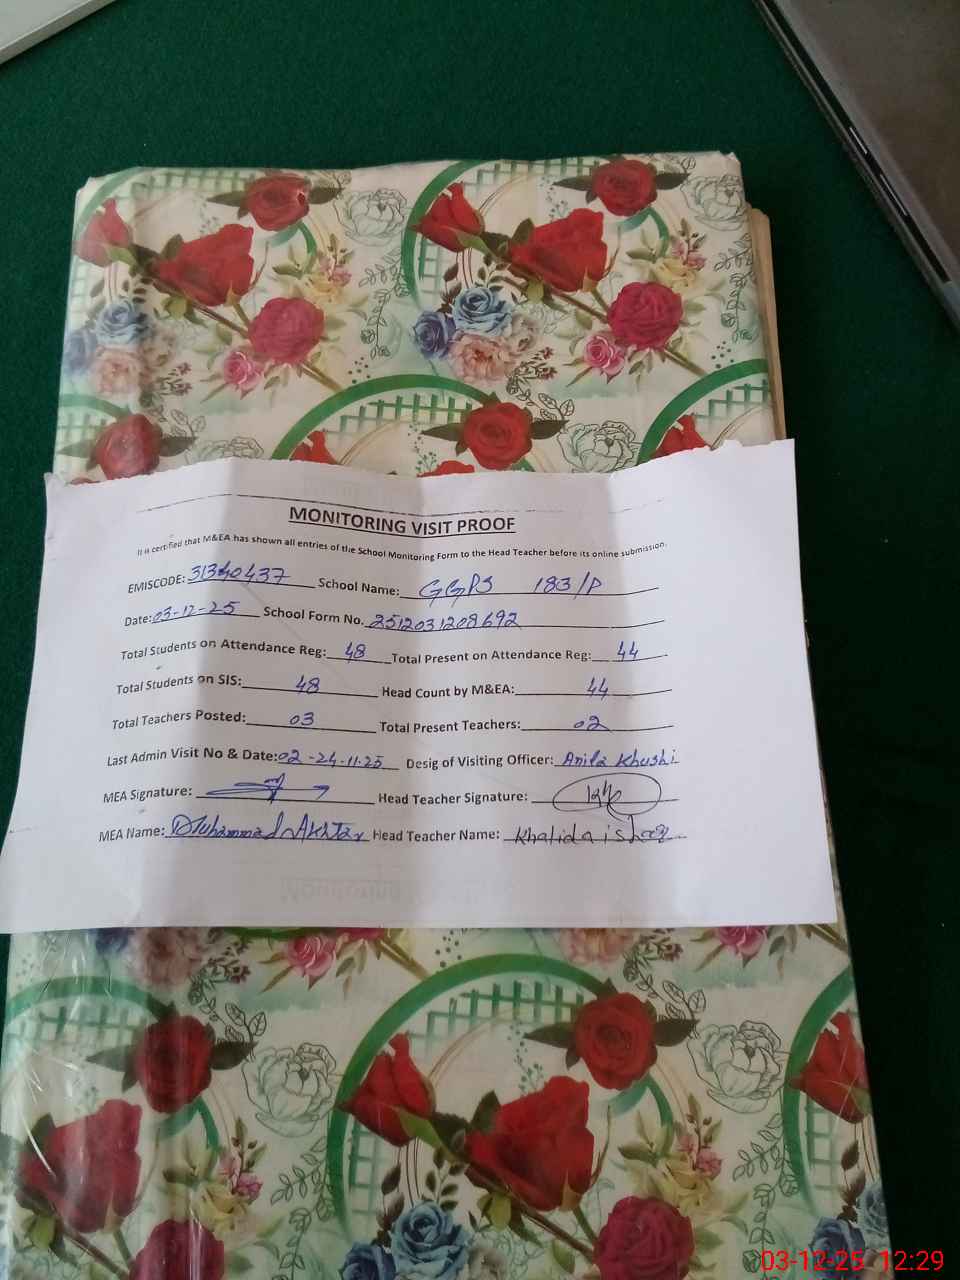 MONITORING VISIT PROOF
It is certified that M&EA has shown all entries of the School Monitoring Form to the Head Teacher before its online submission.
EMISCODE: 31340437 School Name: GGPS 183/P
Date: 03-12-25 School Form No. 2512031208692
Total Students on Attendance Reg: 48 Total Present on Attendance Reg: 44
Total Students on SIS: 48 Head Count by M&EA: 44
Total Teachers Posted: 03 Total Present Teachers: 02
Last Admin Visit No & Date: 02-24-11-25 Desig of Visiting Officer: Anila Khushi
MEA Signature: Head Teacher Signature:
MEA Name: Muhammad Akhtar Head Teacher Name: Khalida ishaq
03-12-25 12:29